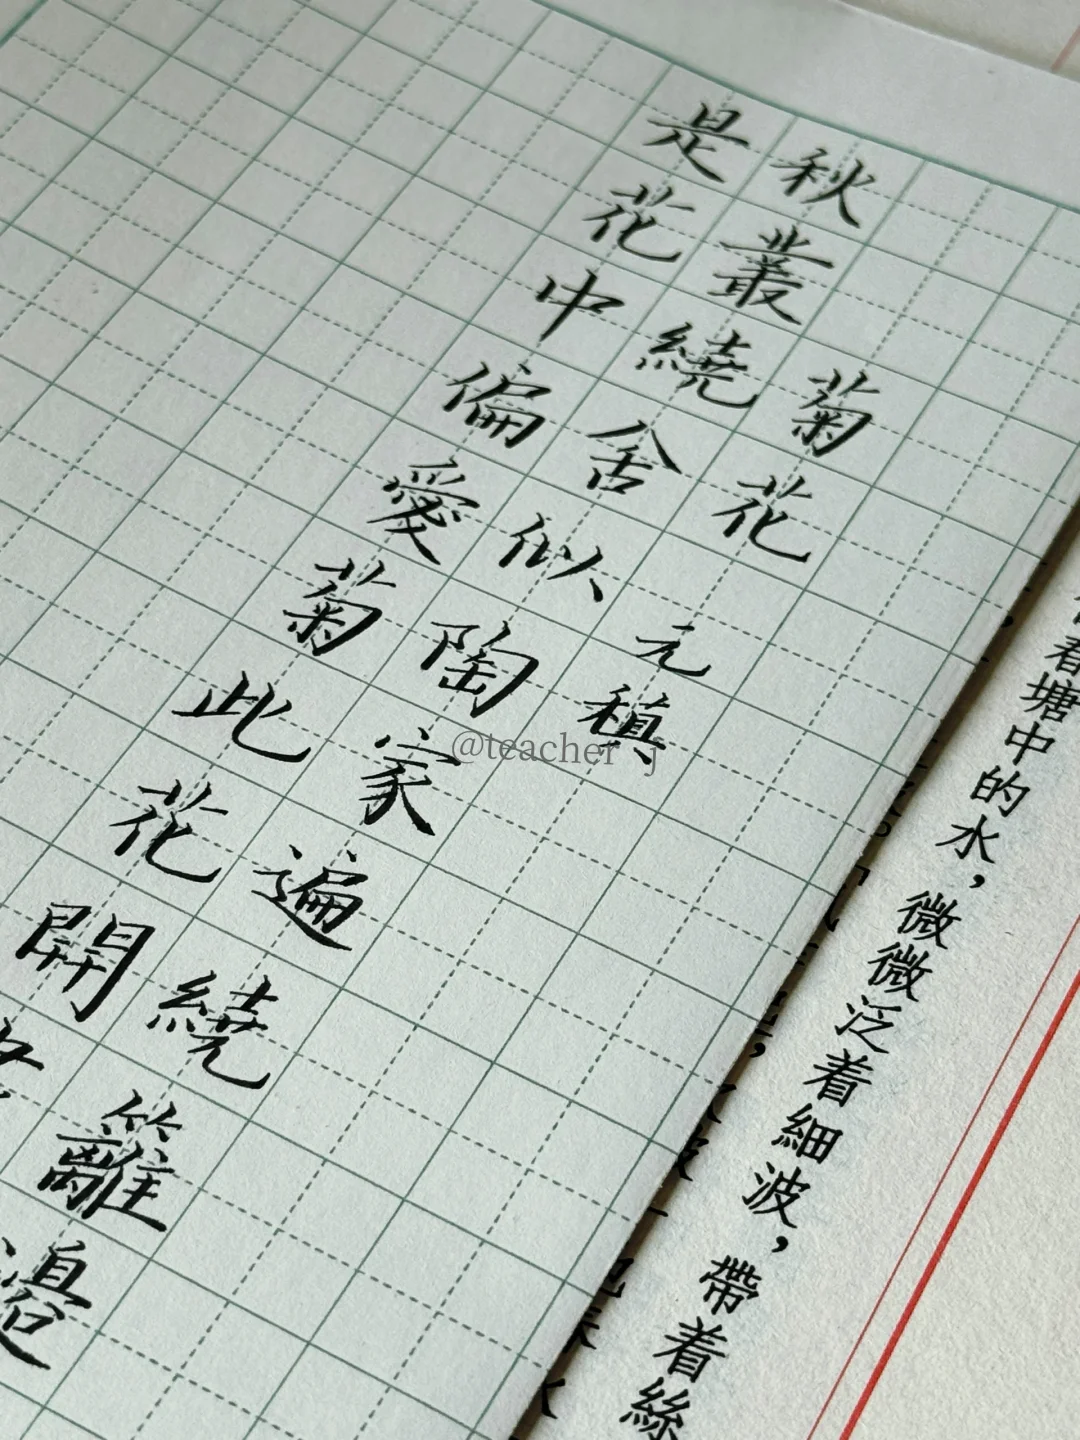 菊花 元稹
秋叢繞舍似陶家遍繞籬邊
是花中偏愛菊此花開
看塘中的水，微微泛着細波，帶着絲
@teacher j